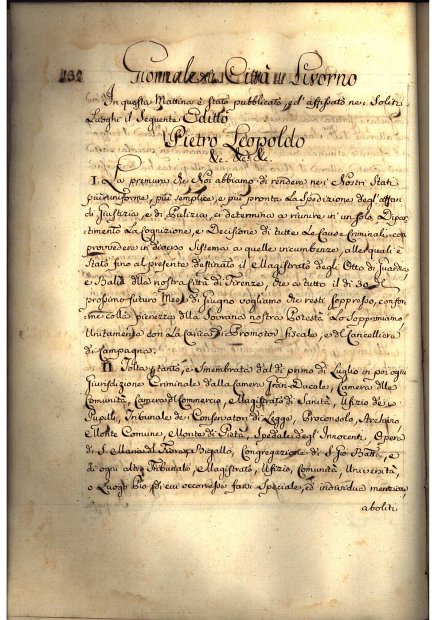 132 Giornale della Città di Livorno
In questa Mattina è stato pubblicato, ed' affissato nei Soliti
Luoghi il Seguente Editto
Pietro Leopoldo
&c. &c. &c.
I. La premura che Noi abbiamo di rendere nei Nostri Stati
più uniforme, più semplice, e più pronta La Spedizione degl'affari
di Giustizia, e di Pulizia, ci determina a riunire in un solo Dipar
timento La Cognizione, e Decisione di tutte Le Cause Criminali, con
provvedere in diverso Sistema a quelle incumbenze, alle quali è
Stato fino al presente destinato il Magistrato degl'Otto di Guardia
e Balìa della nostra Città di Firenze, che a tutto il dì 30 del
prossimo futuro Mese di Giugno vogliamo che resti soppresso, confor
me colla pienezza della Soprana nostra Potestà Lo Sopprimiamo
Unitamente con La Carica di Promotor fiscale, e del Cancelliere
di Campagna.
II. Tolta pertanto, e smembrata dal dì primo di Luglio in poi ogni
Giurisdizione Criminale dalla Camera Gran-Ducale, Camera delle
Comunità, Camera di Commercio, Magistrato di Sanità, Ufizio de
Pupilli, Tribunale de Conservatori di Legge, Proconsolo, Archivio
Monte Comune, Monte di Pietà, Spedale degl'Innocenti, Opera
di S. Maria del Fiore, Bigallo, Congregazione di S. Gio: Batta, e
di ogni altro Tribunale, Magistrato, Ufizio, Comunità, Università,
o Luogo Pio di cui occorresse farsi Speciale, ed individua menzione,
aboliti